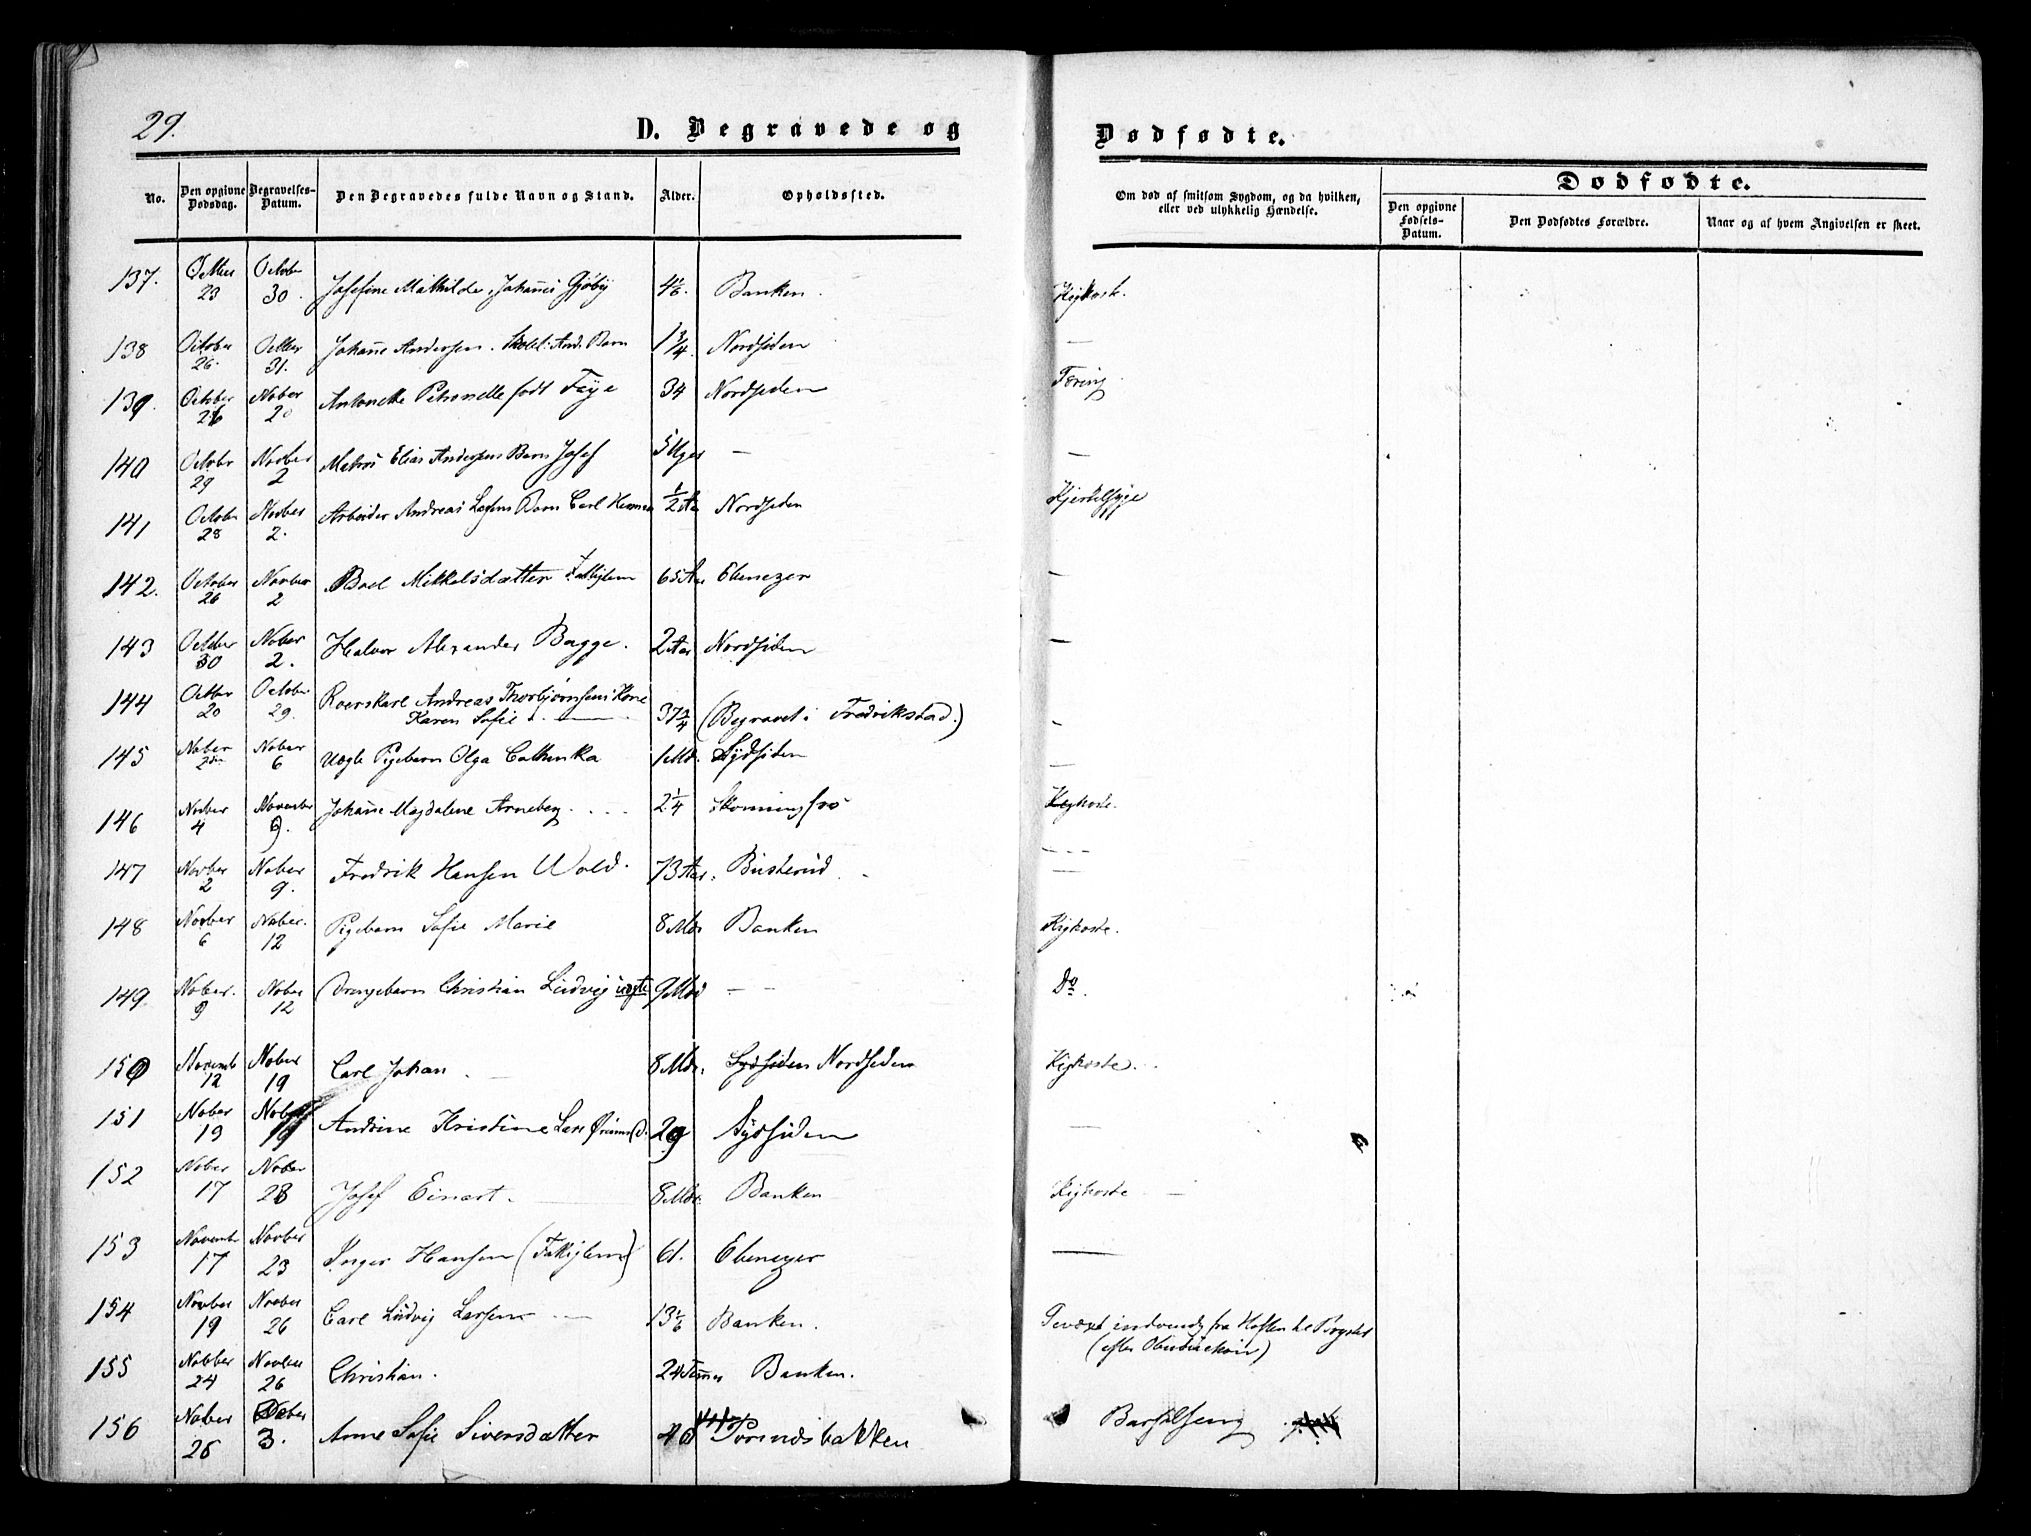 29.
D. Begravede og
Dødfødte.
No.
Den opgivne Dødsdag.
Begravelses-Datum.
Den Begravedes fulde Navn og Stand.
Alder.
Opholdssted.
Om død af smitsom Sygdom, og da hvilken, eller ved ulykkelig Hændelse.
Dødfødte.
Den opgivne Fødsels-Datum.
Den Dødfødtes Forældre.
Naar og af hvem Angivelsen er skeet.
137. October 23 October 30. Josefine Mathilde Johannes Gjøby Banken. Kighoste.
138 October 26. October 31. Johanne Andersen. And. Barn 1 3/4 Nordsiden —
139. October 26 Nober 2 Antonette Petronelle født Faye 34 Nordsiden Tæring.
140 October 29 Novber 2 Matros Elias Andersens Barn Josef 5 Uger — —
141 October 28 Novber 2. Arbeider Andreas Barn Carl 1/2 Aar Nordsiden Kjertelsyge
142. October 26 Novber 2 Boel Mikkelsdatter Fattiglem 65 Aar Ebenezer —
143 October 30 Nober 2. Halvor Alexander Bagge. 2 Aar Nordsiden —
144 October 20 October 29. Roerskarl Andreas Thorbjørnsens Kone
Karen Sofie 37 3/4 (Begravet i Fredrikstad.) -
145 Nober 2den Nober 6 Uægte Pigebarn Olga Cathinka 1 Md. Sydsiden —
146 Novber 4 November 9. Johanne Magdalene Arneberg 2 1/4 Kighoste.
147 Novber 2 Nober 9. Fredrik Hansen Wold. 73 Aar. Busterud - - -
148 Novber 6 Nober. 12 Pigebarn Sofie Marie 8 Mdr Banken Kighoste.
149. Nober. 9 Nober 12 Drengebarn Christian Ludvig uægte 9 Mdr — — Do.
150 Novemb 12 Nober 19 Carl Johan 8 Mdr. Sydsiden Nordsiden Kighoste.
151 Nober 13 Nober 19 Andrine Kristine 29 Sydsiden —
152 Nober 17 Nober 23 Josef Einart. 8 Mdr. Banken Kighoste
153 Novembr 17 Novber 23 Inger Hansen (Fattiglem) 61. Ebenezer —
154 Novber 19 Novber 26 Carl Ludvig Larsen 13 1/6 Banken. indvendig fra Hoften til Brystet
(efter Obduction)
155 Nobber 24 Novber 26 Christian. 24 Timer Banken.
156 Nober 26 Deber 3. Anne Sofie Siversdatter 40 Barselseng